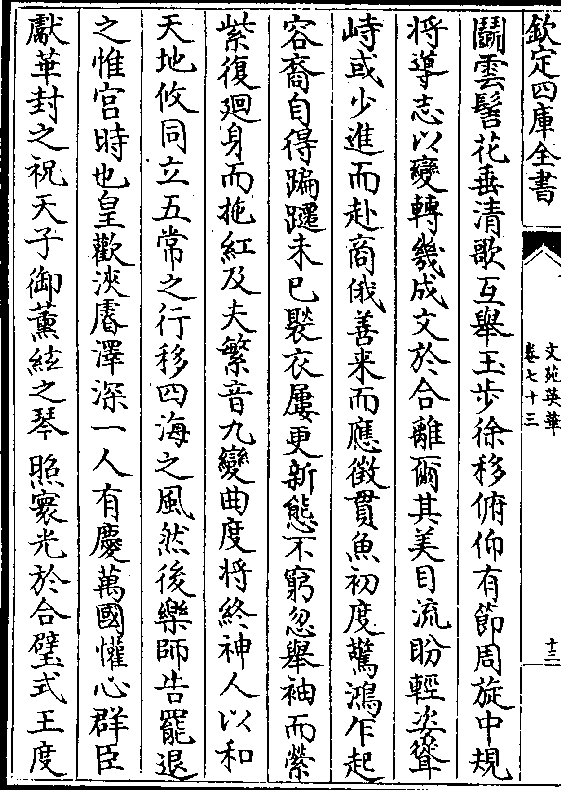 欽定四庫全書
文苑英華
卷七十三
十三
鬭雲髻花垂清歌互舉玉步徐移俯仰有節周旋中規
将導志以變轉幾成文於合離爾其美目流盼輕姿聳
峙或少進而赴商俄善来而應徴貫魚初度驚鴻乍起
容裔自得蹁躚未已褧衣屢更新態不窮忽舉袖而縈
紫復廻身而拖紅及夫繁音九變曲度将終神人以和
天地攸同立五常之行移四海之風然後樂師告罷退
之惟宫時也皇歡浹膺澤深一人有慶萬國懽心群臣
獻華封之祝天子御薰絃之琴照寰光於合璧式王度